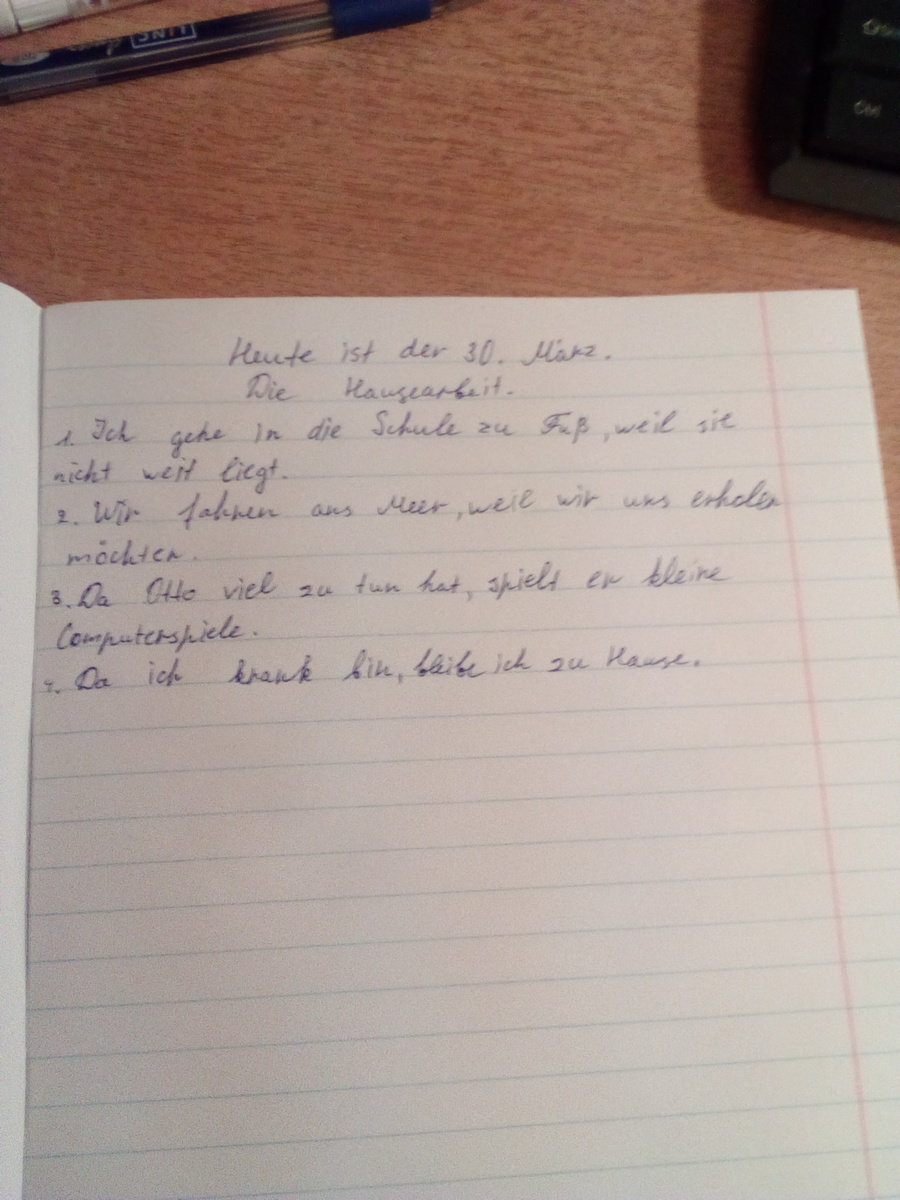 LINC
Heute ist der 30. März.
Die Hausearbeit.
1. Ich gehe in die Schule zu Fuß, weil sie
nicht weit liegt.
2. Wir fahren ans Meer, weil wir uns erholen
möchten.
3. Da Otto viel zu tun hat, spielt er kleine
Computerspiele.
4. Da ich krank bin, bleibe ich zu Hause.